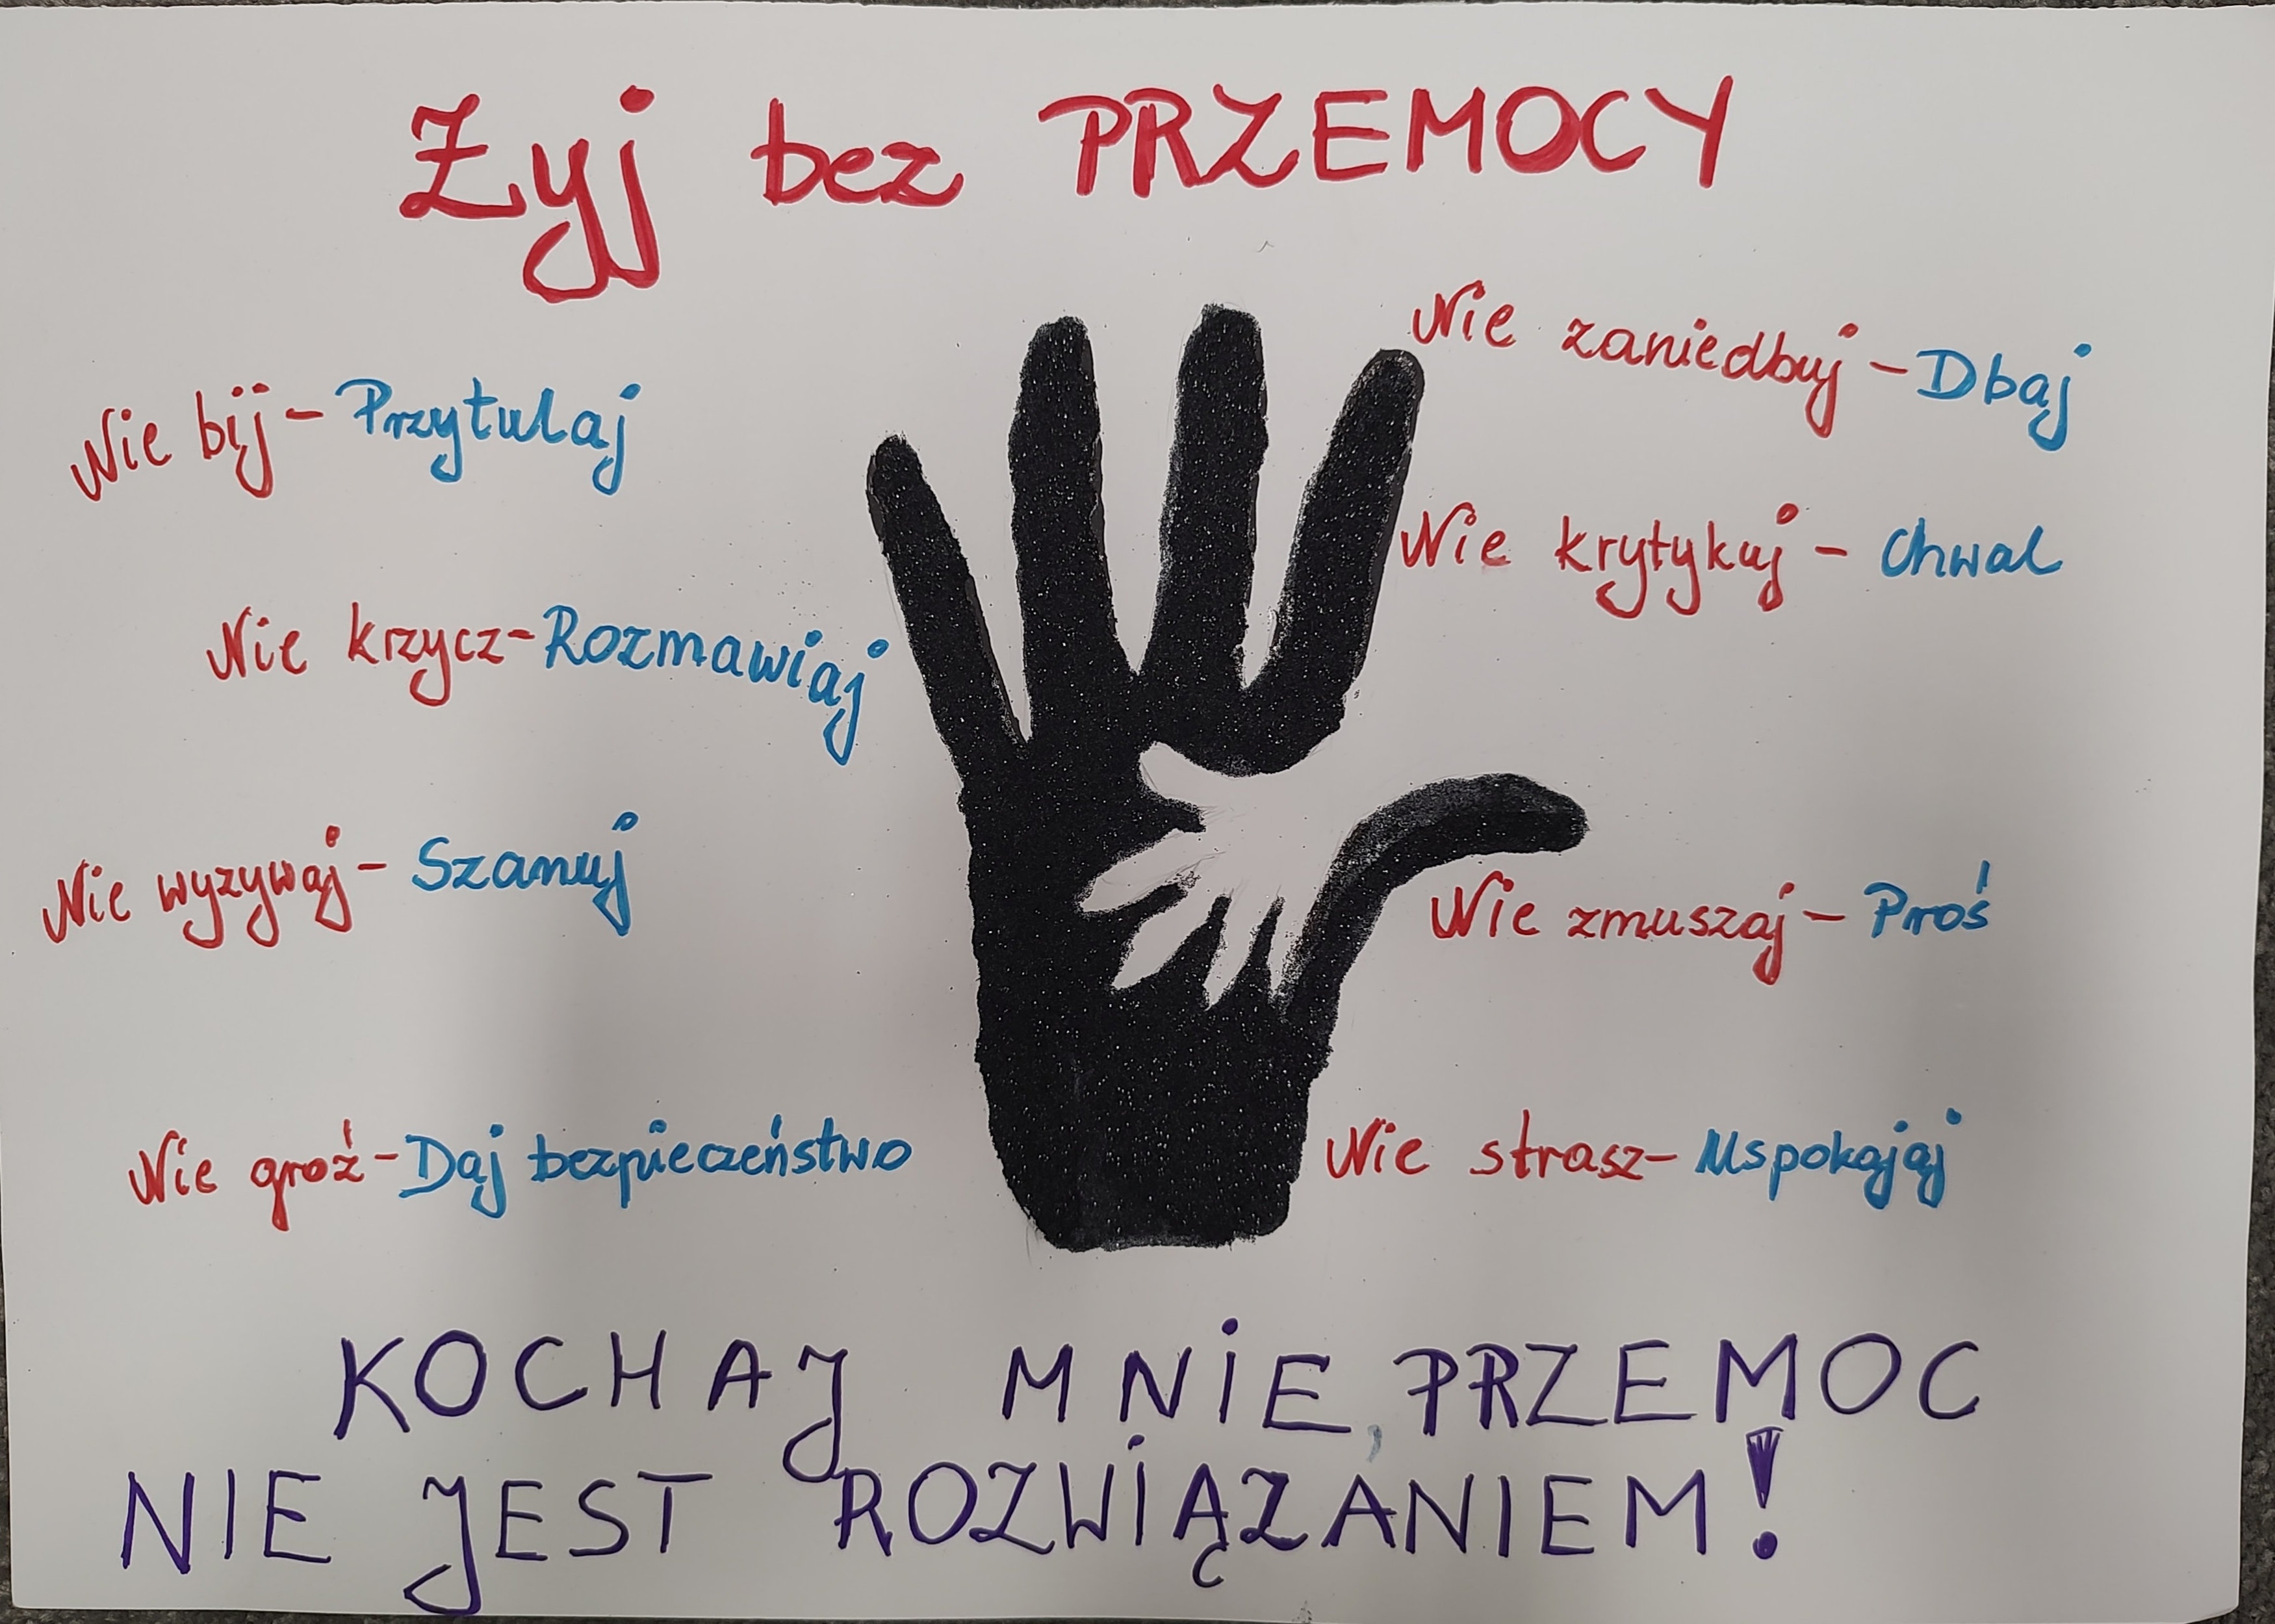 Żyj bez PRZEMOCY
Nie bij - Przytulaj
Nie krzycz - Rozmawiaj
Nie wyzywaj - Szanuj
Nie groź - Daj bezpieczeństwo
Nie zaniedbuj - Dbaj
Nie krytykuj - Chwal
Nie zmuszaj - Proś
Nie strasz - Uspokajaj
KOCHAJ MNIE, PRZEMOC
NIE JEST ROZWIĄZANIEM!